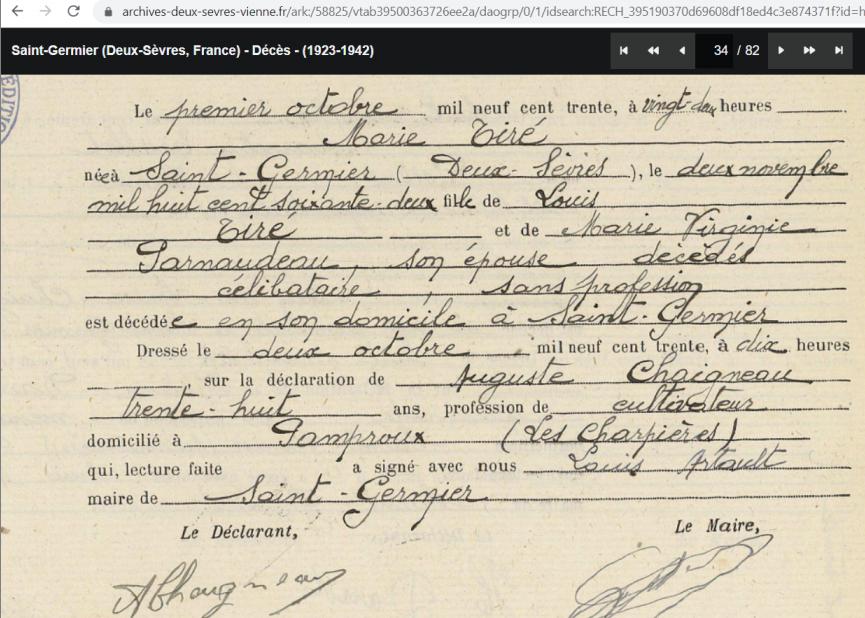 archives-deux-sevres-vienne.fr/ark:/58825/vtab39500363726ee2a/daogrp/0/1/idsearch:RECH_395190370d69608df18ed4c3e874371f?id=h
Saint-Germier (Deux-Sèvres, France) - Décès - (1923-1942)
34 / 82
Le premier octobre mil neuf cent trente, à vingt-deux heures
Marie Tiré
née à Saint-Germier (Deux-Sèvres), le deux novembre
mil huit cent soixante-deux fille de Louis
Tiré et de Marie Virginie
Parnaudeau, son épouse décédés
célibataire, sans profession
est décédée en son domicile à Saint-Germier
Dressé le deux octobre, mil neuf cent trente, à dix heures
, sur la déclaration de Auguste Chaigneau
trente-huit ans, profession de cultivateur
domicilié à Pamproux (Les Charpières)
qui, lecture faite a signé avec nous Louis Artault
maire de Saint-Germier
Le Déclarant, Le Maire,